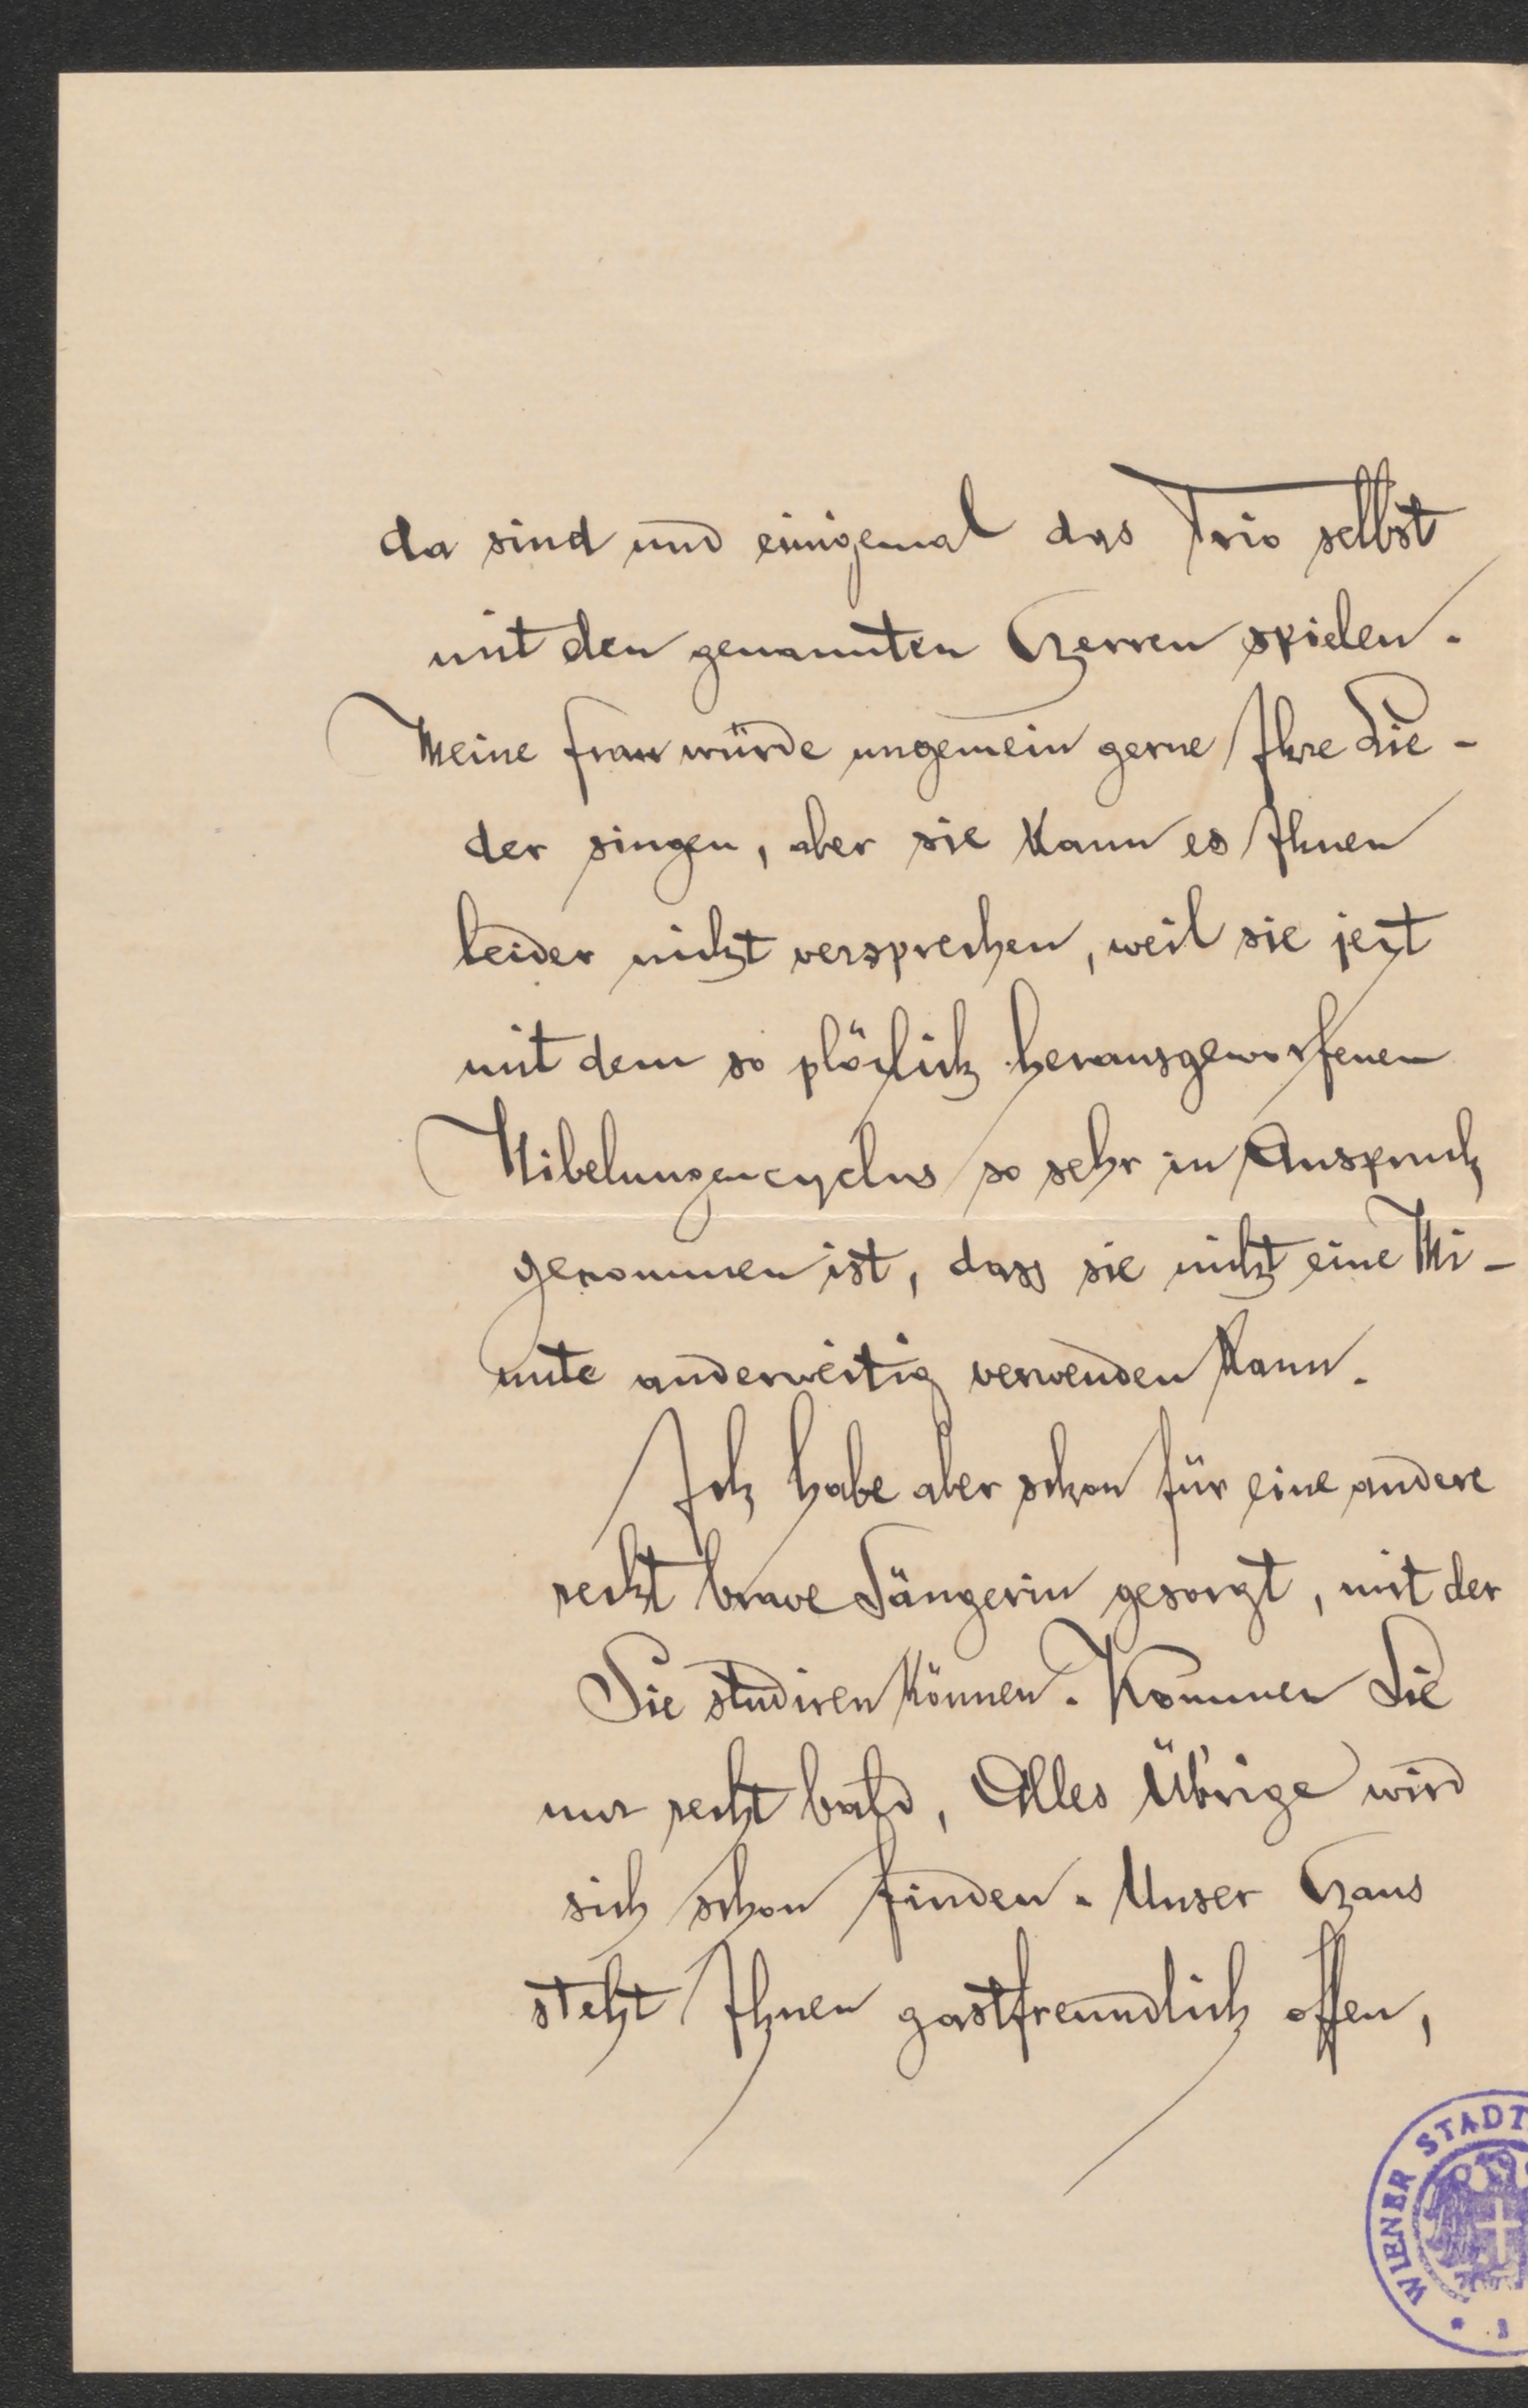 da sind und einigemal das Trio selbst
mit den genannten Herren spielen.
Meine Frau würde ungemein gerne Ihre Lie-
der singen, aber sie kann es Ihnen
leider nicht versprechen, weil sie jezt
mit dem so plözlich herausgeworfenen
Nibelungencyclus so sehr in Anspruch
genommen ist, dass sie nicht eine Mi-
nute anderweitig verwenden kann.
Ich habe aber schon für eine andere
recht brave Sängerin gesorgt, mit der
Sie studiren können. Kommen Sie
nur recht bald, Alles Übrige wird
sich schon finden. Unser Haus
steht Ihnen gastfreundlich offen,
WIENER STADT